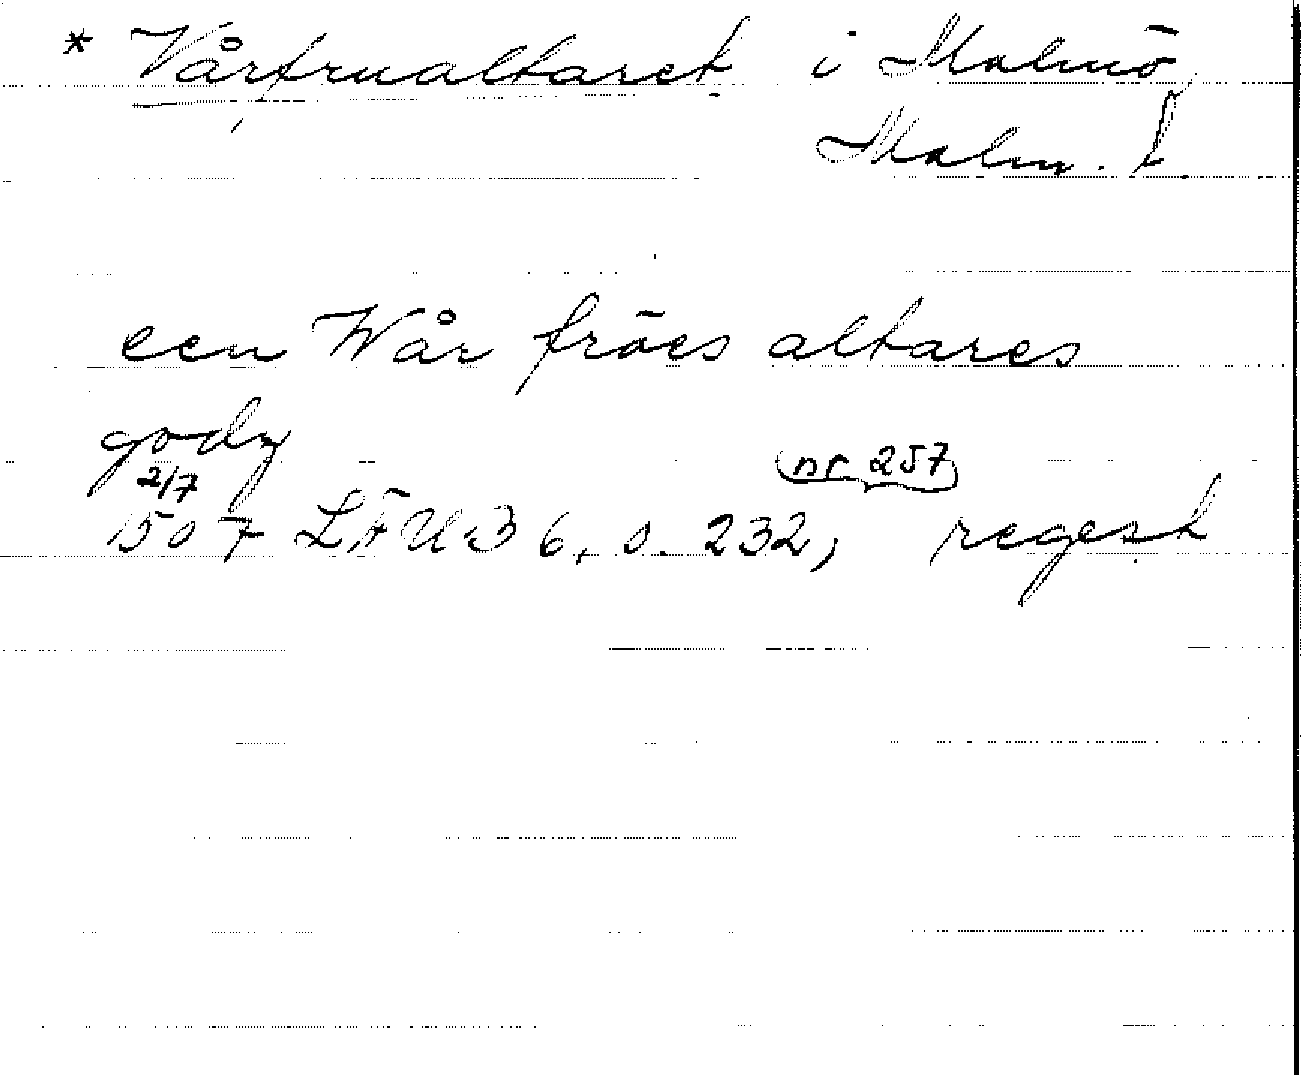 * Vårfrualtaret i Malmö
Malm. l.
een Wår fröes altares
godz
2/7 nr 257
1507 LÄUB 6, s. 232, regest